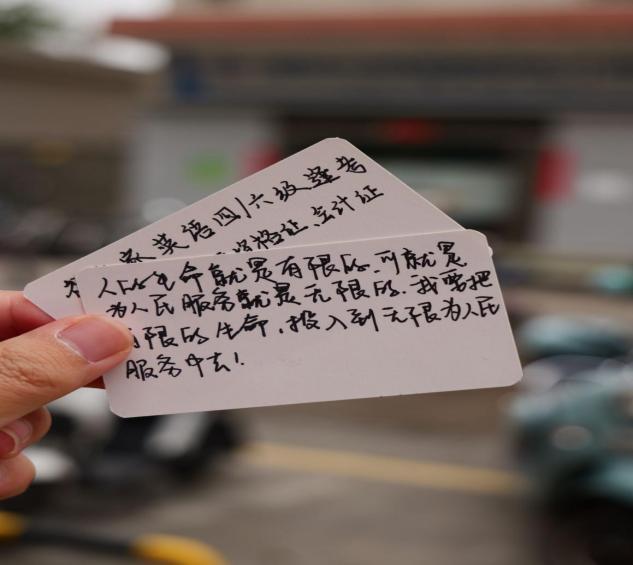 英语四/六级逢考
资格证、会计证
人的生命就是有限的.可就是
为人民服务就是无限的.我要把
有限的生命,投入到无限为人民
服务中去!